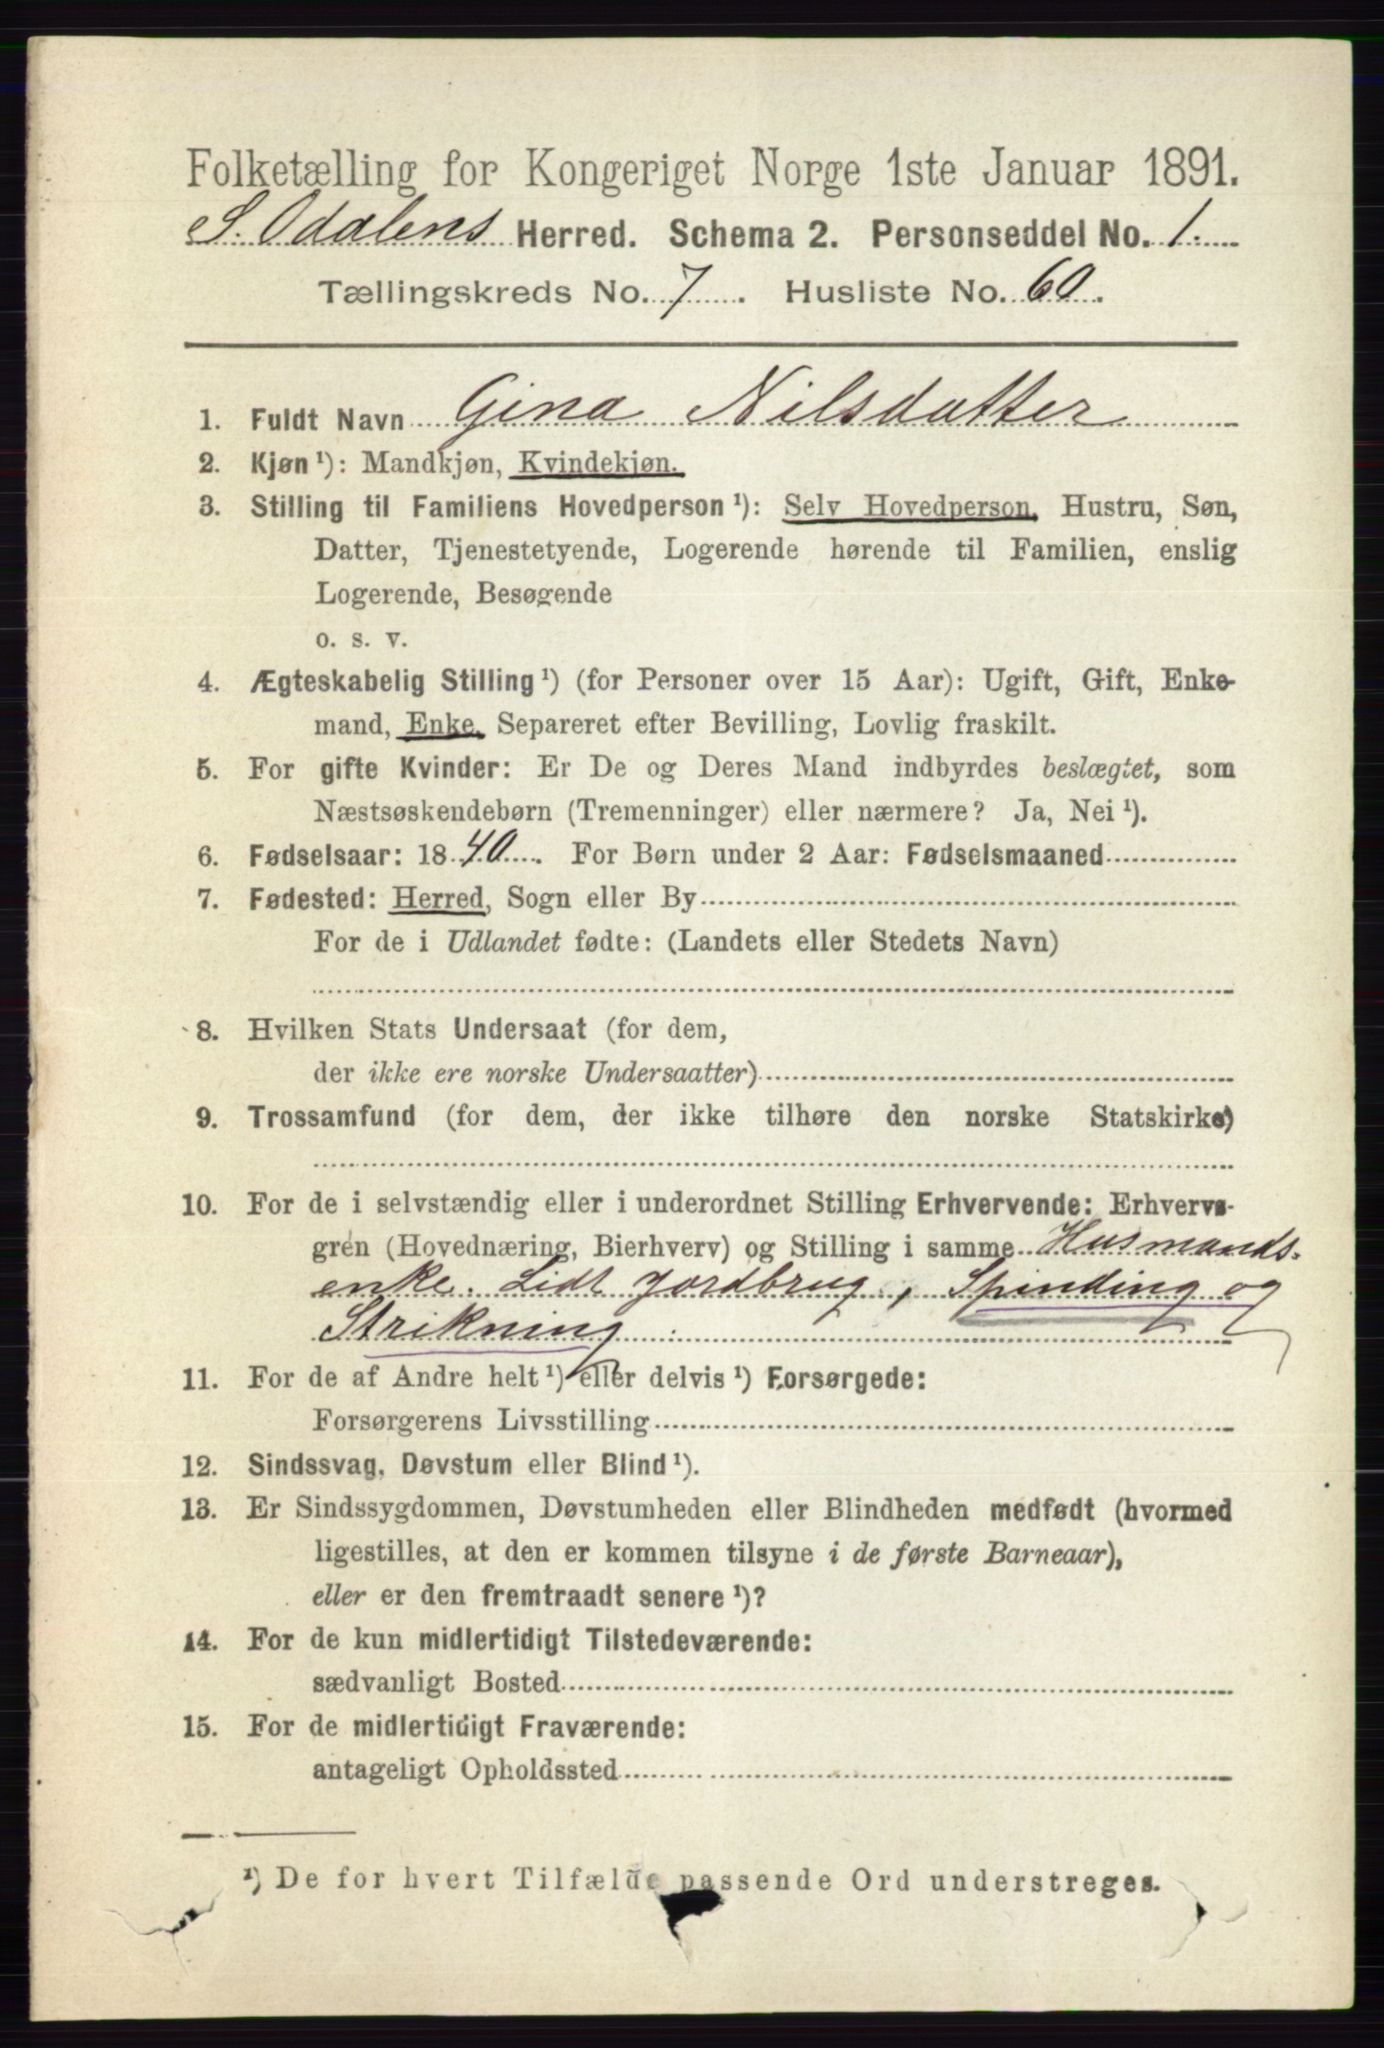 Folketælling for Kongeriget Norge 1ste Januar 1891.
S. Odalens Herred. Schema 2. Personseddel No. 1.
Tællingskreds No. 7. Husliste No. 60.
1. Fuldt Navn Gina Nilsdatter
2. Kjøn ¹): Mandkjøn, Kvindekjøn.
3. Stilling til Familiens Hovedperson ¹): Selv Hovedperson, Hustru, Søn,
Datter, Tjenestetyende, Logerende hørende til Familien, enslig
Logerende, Besøgende
o. s. v.
4. Ægteskabelig Stilling ¹) (for Personer over 15 Aar): Ugift, Gift, Enke-
mand, Enke, Separeret efter Bevilling, Lovlig fraskilt.
5. For gifte Kvinder: Er De og Deres Mand indbyrdes beslægtet, som
Næstsøskendebørn (Tremenninger) eller nærmere? Ja, Nei ¹).
6. Fødselsaar: 1840. For Børn under 2 Aar: Fødselsmaaned
7. Fødested: Herred, Sogn eller By
For de i Udlandet fødte: (Landets eller Stedets Navn)
8. Hvilken Stats Undersaat (for dem,
der ikke ere norske Undersaatter)
9. Trossamfund (for dem, der ikke tilhøre den norske Statskirke)
10. For de i selvstændig eller i underordnet Stilling Erhvervende: Erhvervs-
gren (Hovednæring, Bierhverv) og Stilling i samme Husmands-
enke. Lidt Jordbrug, Spinding og
Strikning
11. For de af Andre helt ¹) eller delvis ¹) Forsørgede:
Forsørgerens Livsstilling
12. Sindssvag, Døvstum eller Blind ¹).
13. Er Sindssygdommen, Døvstumheden eller Blindheden medfødt (hvormed
ligestilles, at den er kommen tilsyne i de første Barneaar),
eller er den fremtraadt senere ¹)?
14. For de kun midlertidigt Tilstedeværende:
sædvanligt Bosted
15. For de midlertidigt Fraværende:
antageligt Opholdssted
¹) De for hvert Tilfælde passende Ord understreges.